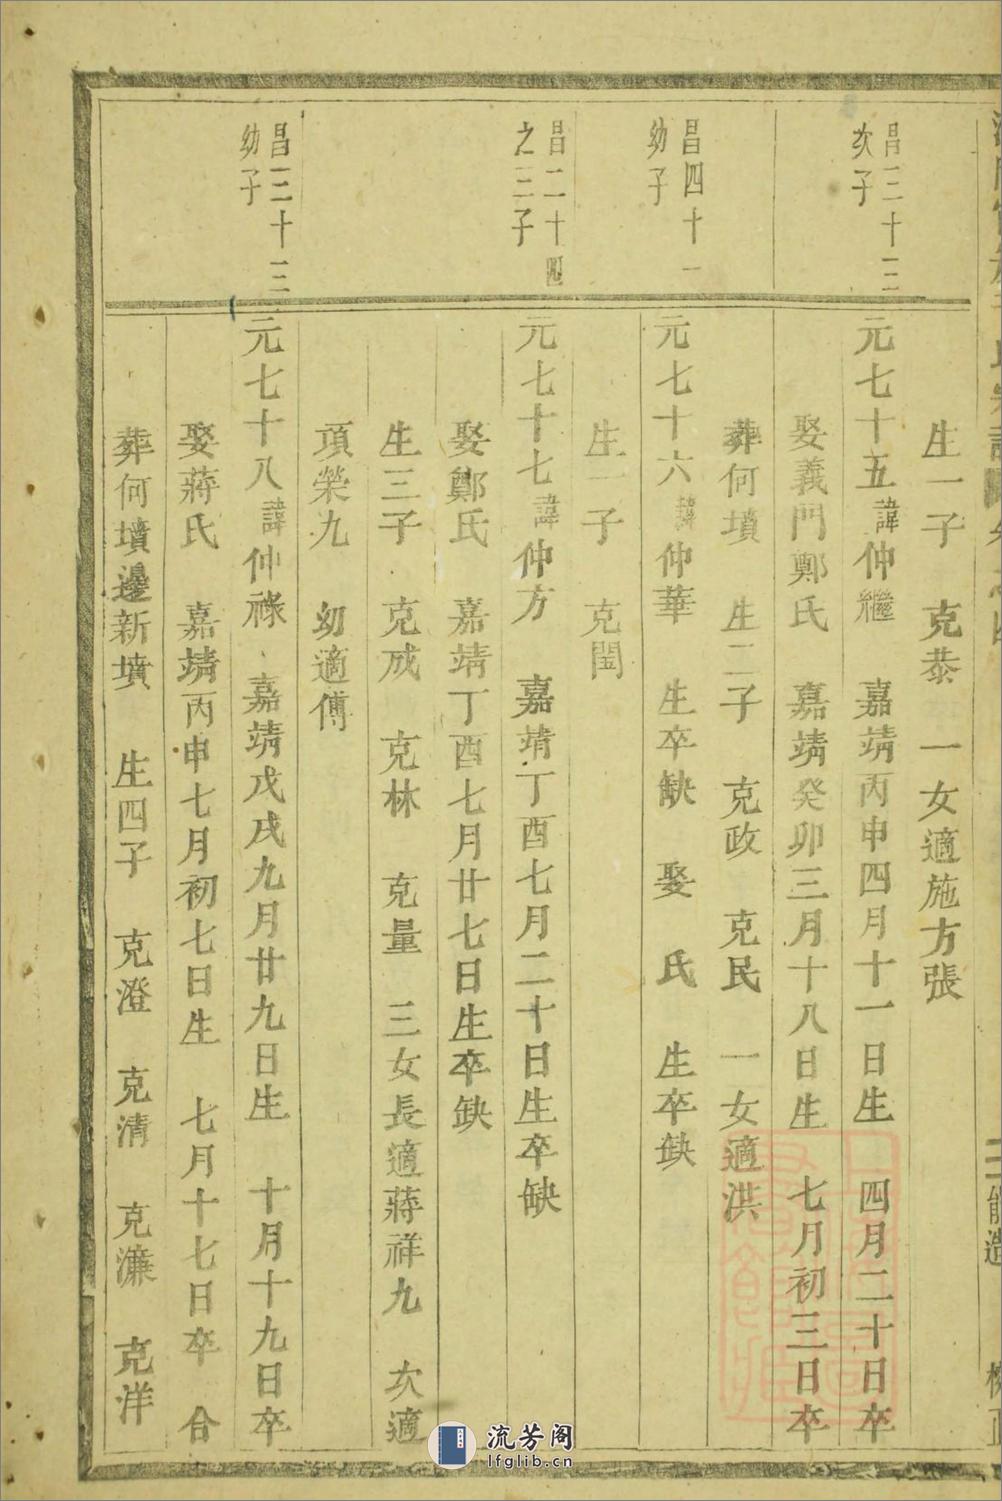 生一子 克恭 一女適施方張
昌三十三
次子
元七十五諱仲繼 嘉靖丙申四月十一日生 四月二十日卒
娶義門鄭氏 嘉靖癸卯三月十八日生 七月初三日卒
葬何墳 生二子 克政 克民 一女適洪
昌四十一
幼子
元七十六諱仲華 生卒缺 娶 氏 生卒缺
生一子 克閏
昌二十四
之三子
元七十七諱仲方 嘉靖丁酉七月二十日生卒缺
娶鄭氏 嘉靖丁酉七月廿七日生卒缺
生三子 克成 克林 克量 三女長適蔣祥九 次適
項榮九 幼適傅
昌三十三
幼子
元七十八諱仲祿 嘉靖戊戌九月廿九日生 十月十九日卒
娶蔣氏 嘉靖丙申七月初七日生 七月十七日卒 合
葬何墳邊新墳 生四子 克澄 克清 克濂 克洋
流芳阁
lfglib.cn